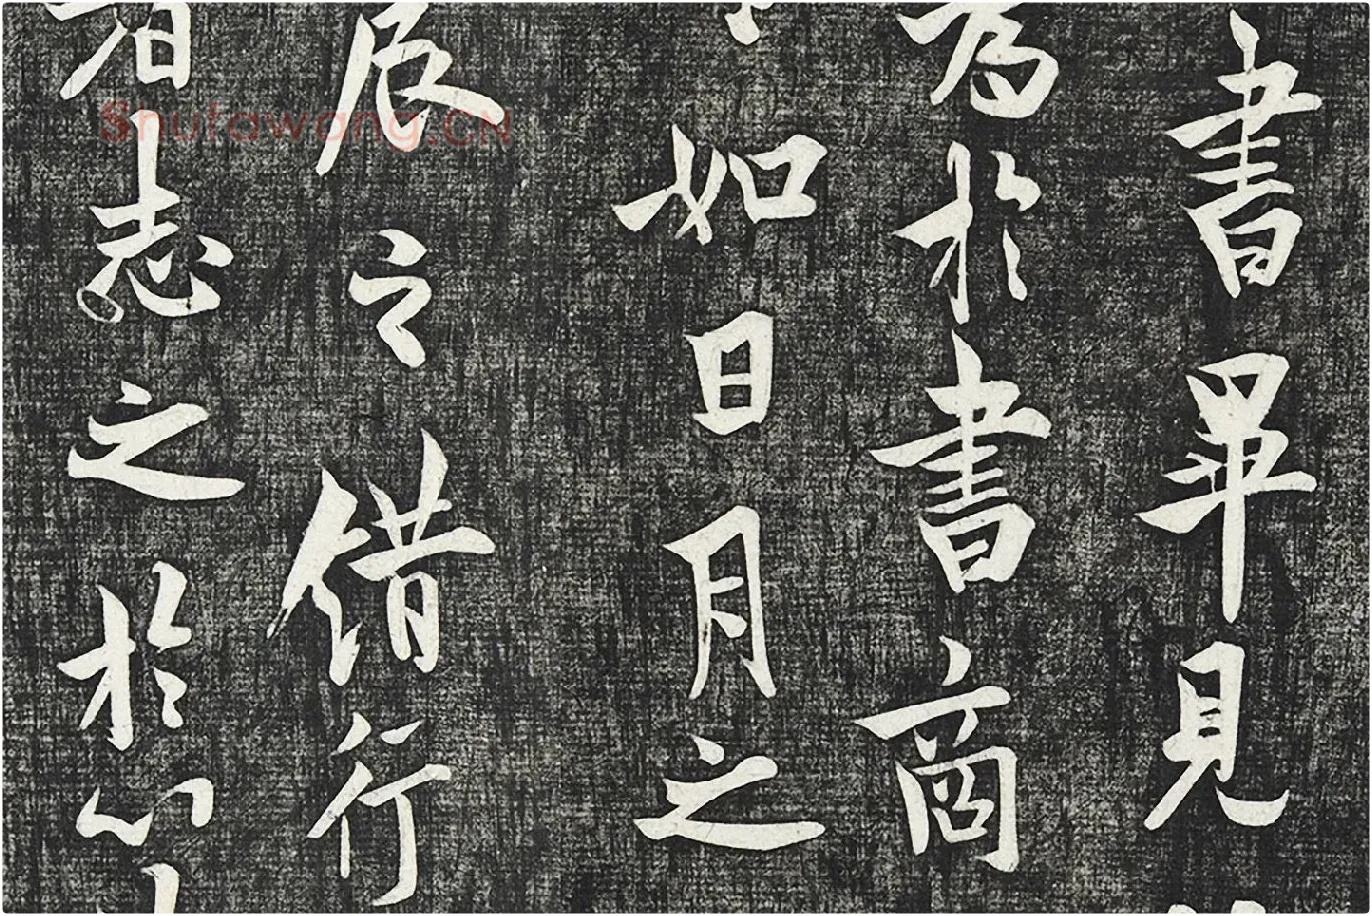 書畢見
為於書商
如日月之
辰之錯行
志之於心
Shufawang.CN